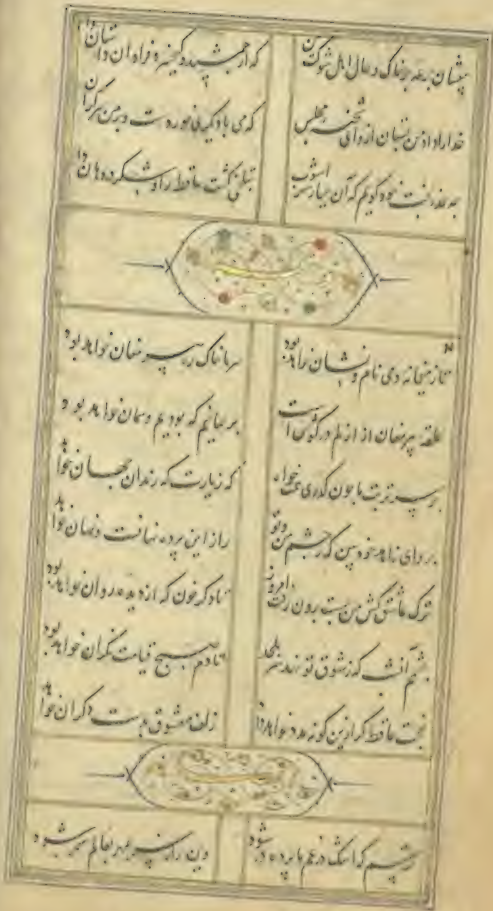 بیفشان جرعه بر خاک و حال اهل شوکت بین که از جمشید و کیخسرو فراوان داستان دارد
خدا را داد من بستان ازو ای شحنه مجلس که می با دیگری خورده ست و بر من سر گران دارد
چه عذر بخت خود گویم که آن عیار شهرآشوب بتلخی کشت حافظ را و شکر در دهان دارد
تا ز میخانه و می نام و نشان خواهد بود سر ما خاک ره پیر مغان خواهد بود
حلقه پیر مغان از ازلم در گوش است بر همانیم که بودیم و همان خواهد بود
بر سر تربت ما چون گذری همت خواه که زیارتگه رندان جهان خواهد بود
برو ای زاهد خودبین که ز چشم من و تو راز این پرده نهانست و نهان خواهد بود
ترک عاشق کش من مست برون رفت امروز تا دگر خون که از دیده روان خواهد بود
چشمم آنشب که ز شوق تو نهد سر بلحد تا دم صبح قیامت نگران خواهد بود
بخت حافظ گر ازین گونه مدد خواهد داد زلف معشوق بدست دگران خواهد بود
ترسم که اشک در غم ما پرده در شود وین راز سر بمهر بعالم سمر شود